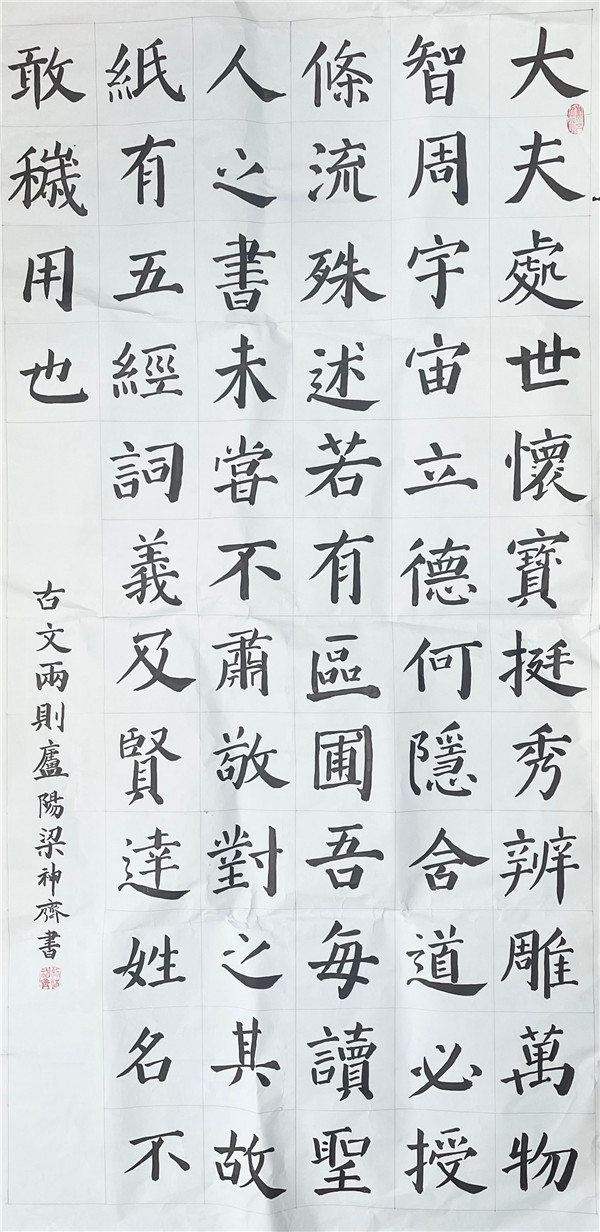 大夫處世懷寶挺秀辨雕萬物
智周宇宙立德何隱含道必授
條流殊述若有區囿吾每讀聖
人之書未嘗不肅敬對之其故
紙有五經詞義及賢達姓名不
敢穢用也
古文兩則廬陽梁神齊書